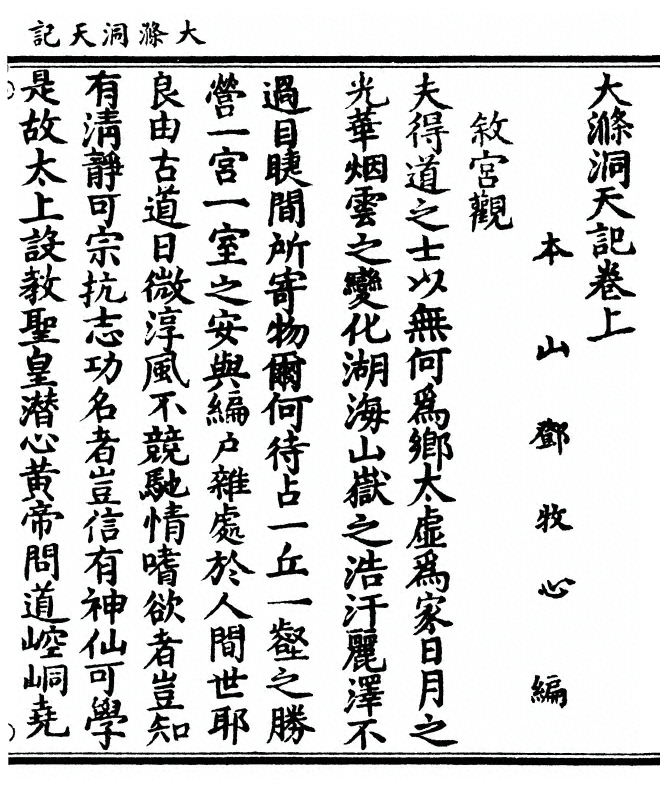 大滌洞天記
大滌洞天記卷上
本山鄧牧心編
敘宮觀
夫得道之士以無何爲鄉太虛爲家日月之
光華烟雲之變化湖海山嶽之浩汗麗澤不
過目睫間所寄物爾何待占一丘一壑之勝
營一宮一室之安與編戶雜處於人間世耶
良由古道日微淳風不競馳情嗜欲者豈知
有清靜可宗抗志功名者豈信有神仙可學
是故太上設教聖皇潜心黃帝問道崆峒堯